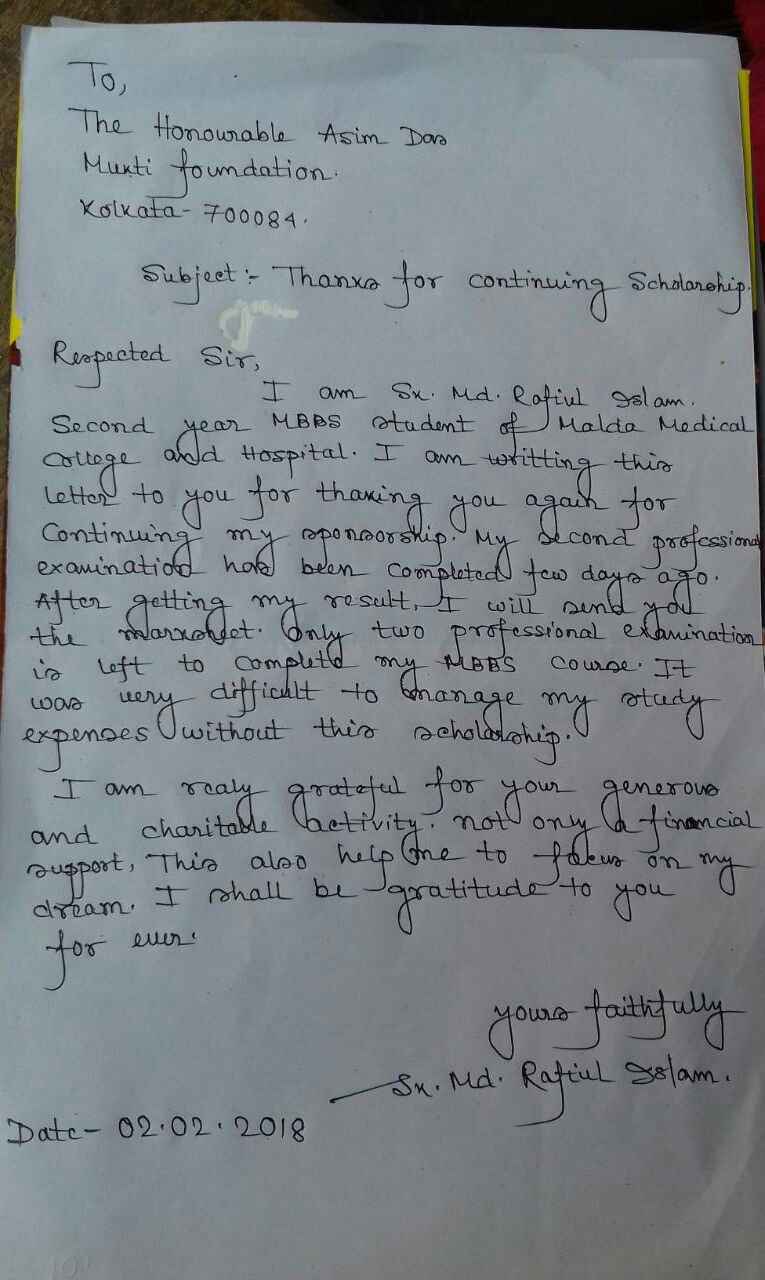 To,
The Honourable Asim Das
Mukti foundation.
Kolkata- 700084.
Subject:- Thanks for continuing Scholarship.
Respected Sir,
I am Sk. Md. Rafiul Islam.
Second year MBBS student of Malda Medical
College and Hospital. I am writting this
letter to you for thaking you again for
Continuing my sponsorship. My second professional
examination has been completed few days ago.
After getting my result, I will send you
the marksheet. Only two professional examination
is left to complete my MBBS course. It
was very difficult to manage my study
expenses without this scholarship.
I am realy grateful for your generous
and charitable activity. not only a financial
support, This also help me to fokus on my
dream. I shall be gratitude to you
for ever.
yours faithfully
Sk. Md. Rafiul Islam.
Date- 02.02.2018